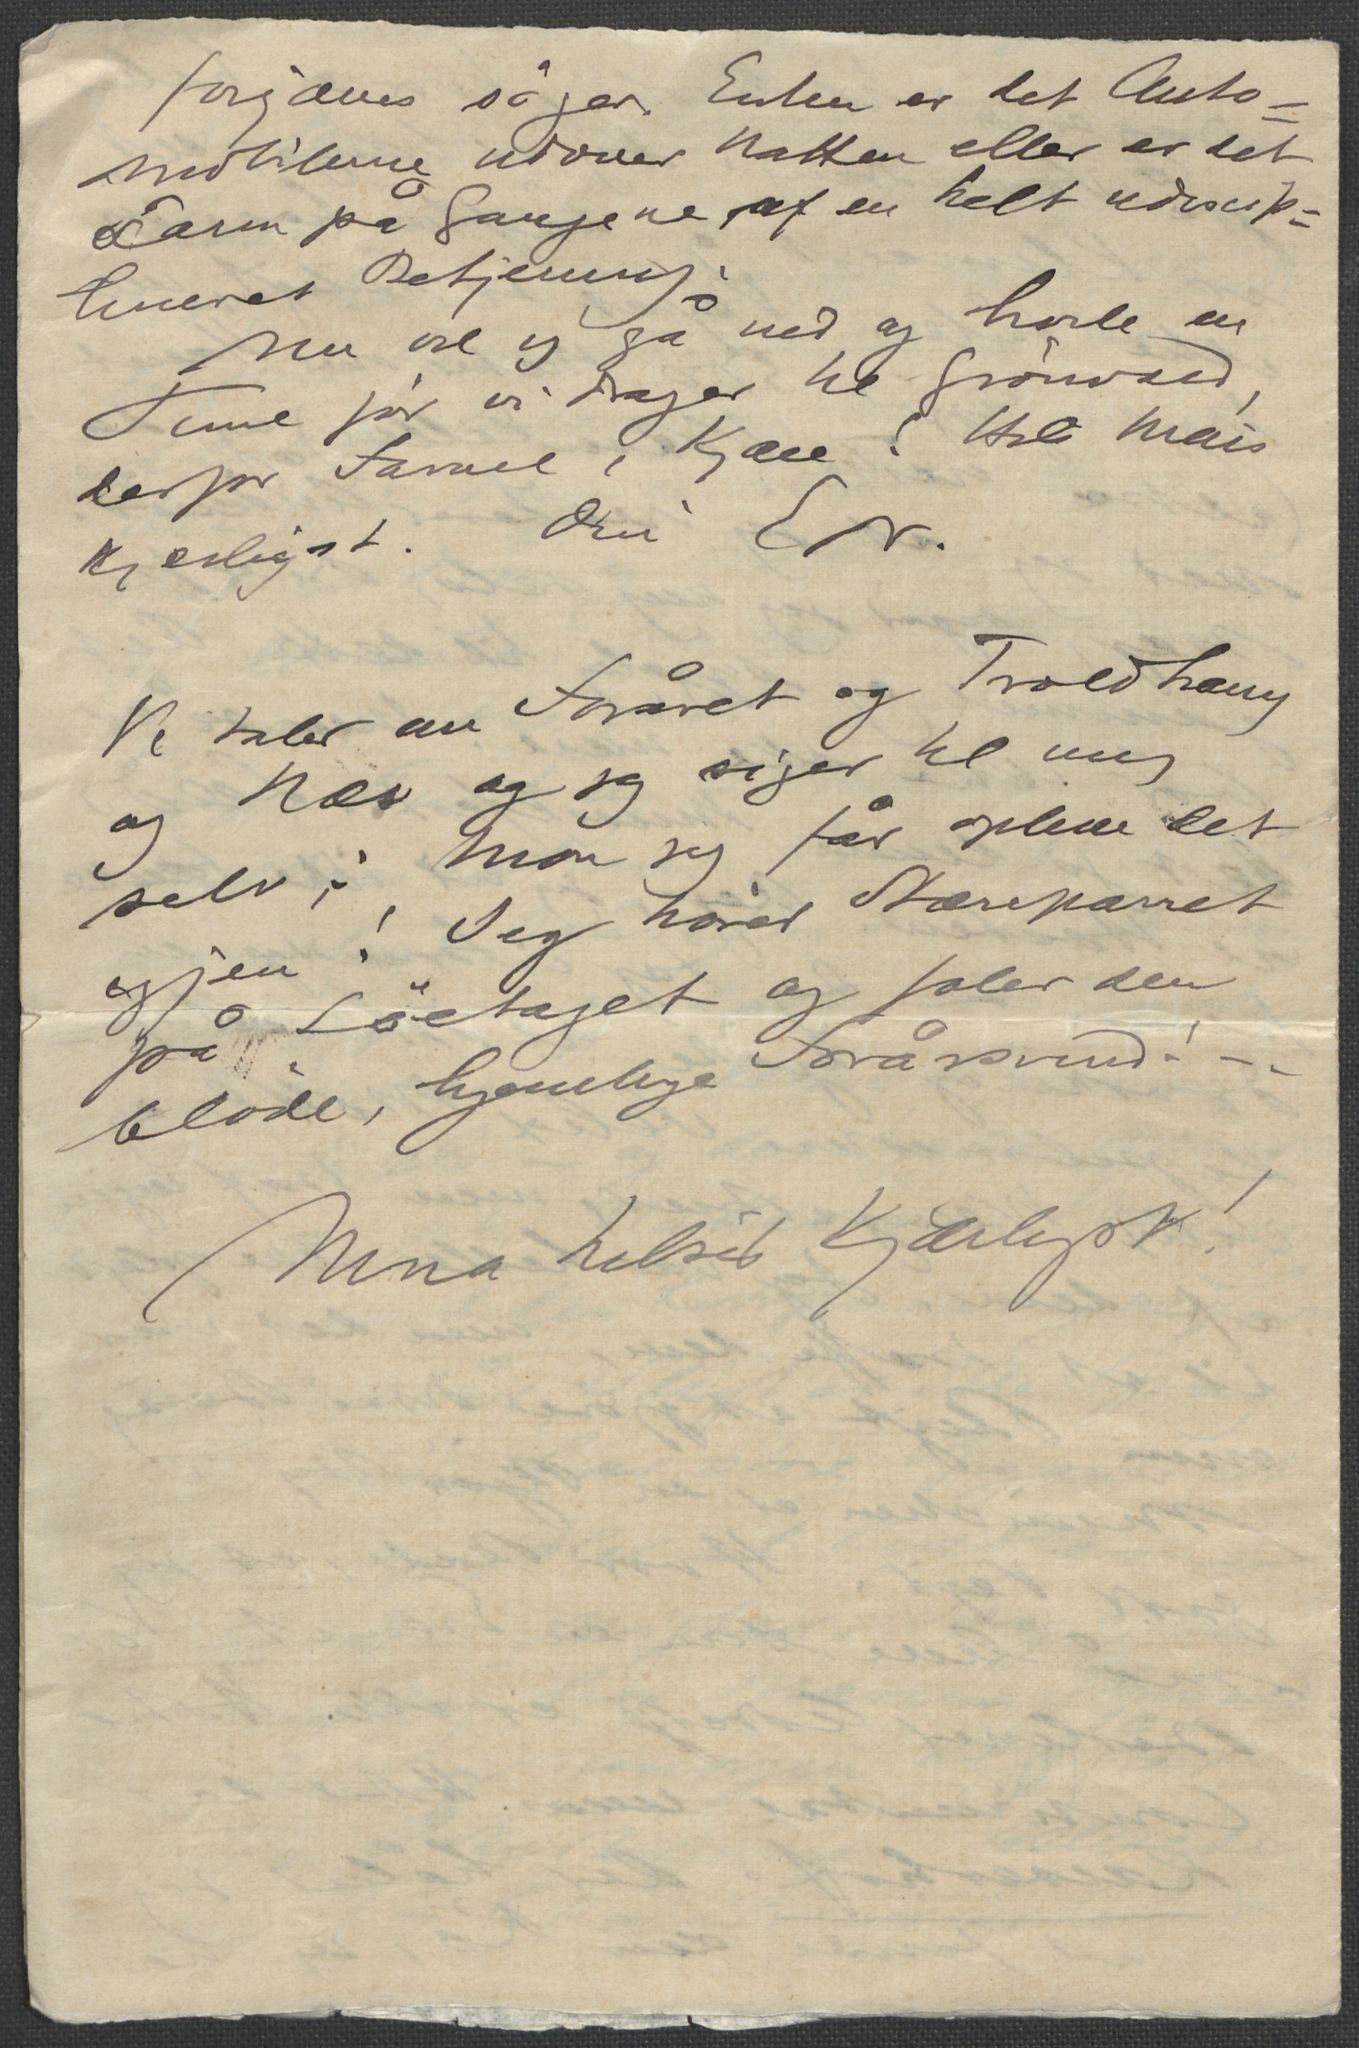 forgjæves söger. Enten er det Auto=
mobilerne udover Natten eller er det
Larm på Gangene af en helt udiscip=
lineret Betjening.
Nu vil jeg gå ned og hvile en
Time før vi drager til Grönvold,
derfor Farvel, Kjære! Hils Marie
kjærligst. Din EG.
Vi taler om Foråret og Troldhaug
og Næs og jeg siger til mig
selv: Mon jeg får opleve det
igjen! Jeg hører Stæreparret
på Löetaget og føler den
bløde, hjemlige Forårsvind! - -
Nina hilser Kjærligst!